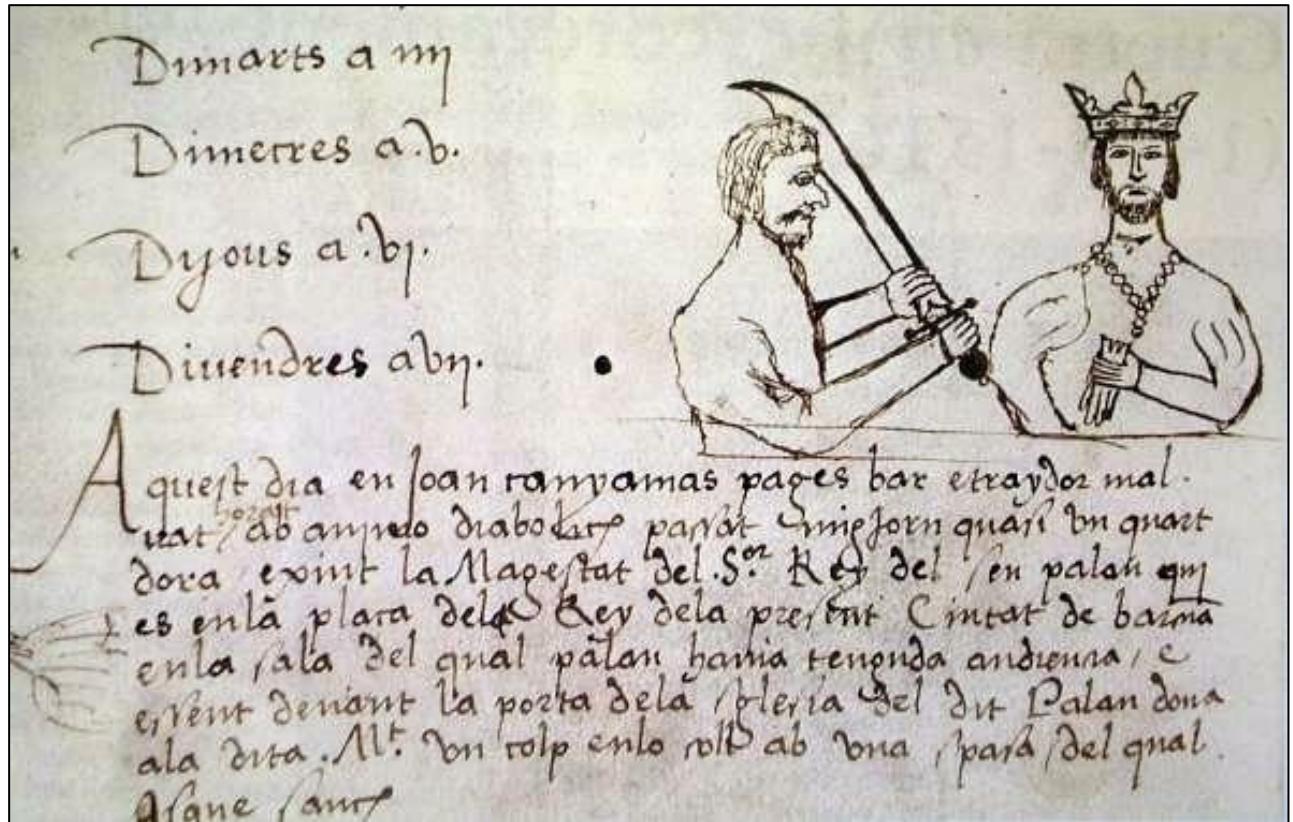 Dimarts a iiij
Dimecres a .v.
Dijous a .vj.
Divendres a vij.
Aquest dia en Joan canyamas pages bar e traydor mal
vat ab animo diabolich passat mig jorn quasi vn quart
dora exint la Magestat del .S.or Rey del seu palau qui
es en la plaça del Rey dela present Ciutat de barna
en la sala del qual palau hauia tenguda audiencia, e
essent deuant la porta dela sglesia del dit Palau dona
ala dita .Mt. vn colp enlo coll ab vna spasa del qual